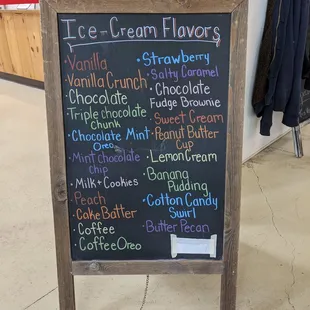 Ice-Cream Flavors
• Vanilla
• Vanilla Crunch
• Chocolate
• Triple chocolate
chunk
• Chocolate Mint
Oreo
• Mint chocolate
chip
• Milk + Cookies
• Peach
• Cake Batter
• Coffee
• Coffee Oreo
• Strawberry
• Salty Caramel
• Chocolate
Fudge Brownie
• Sweet Cream
• Peanut Butter
Cup
• Lemon Cream
• Banana
Pudding
• Cotton Candy
Swirl
• Butter Pecan